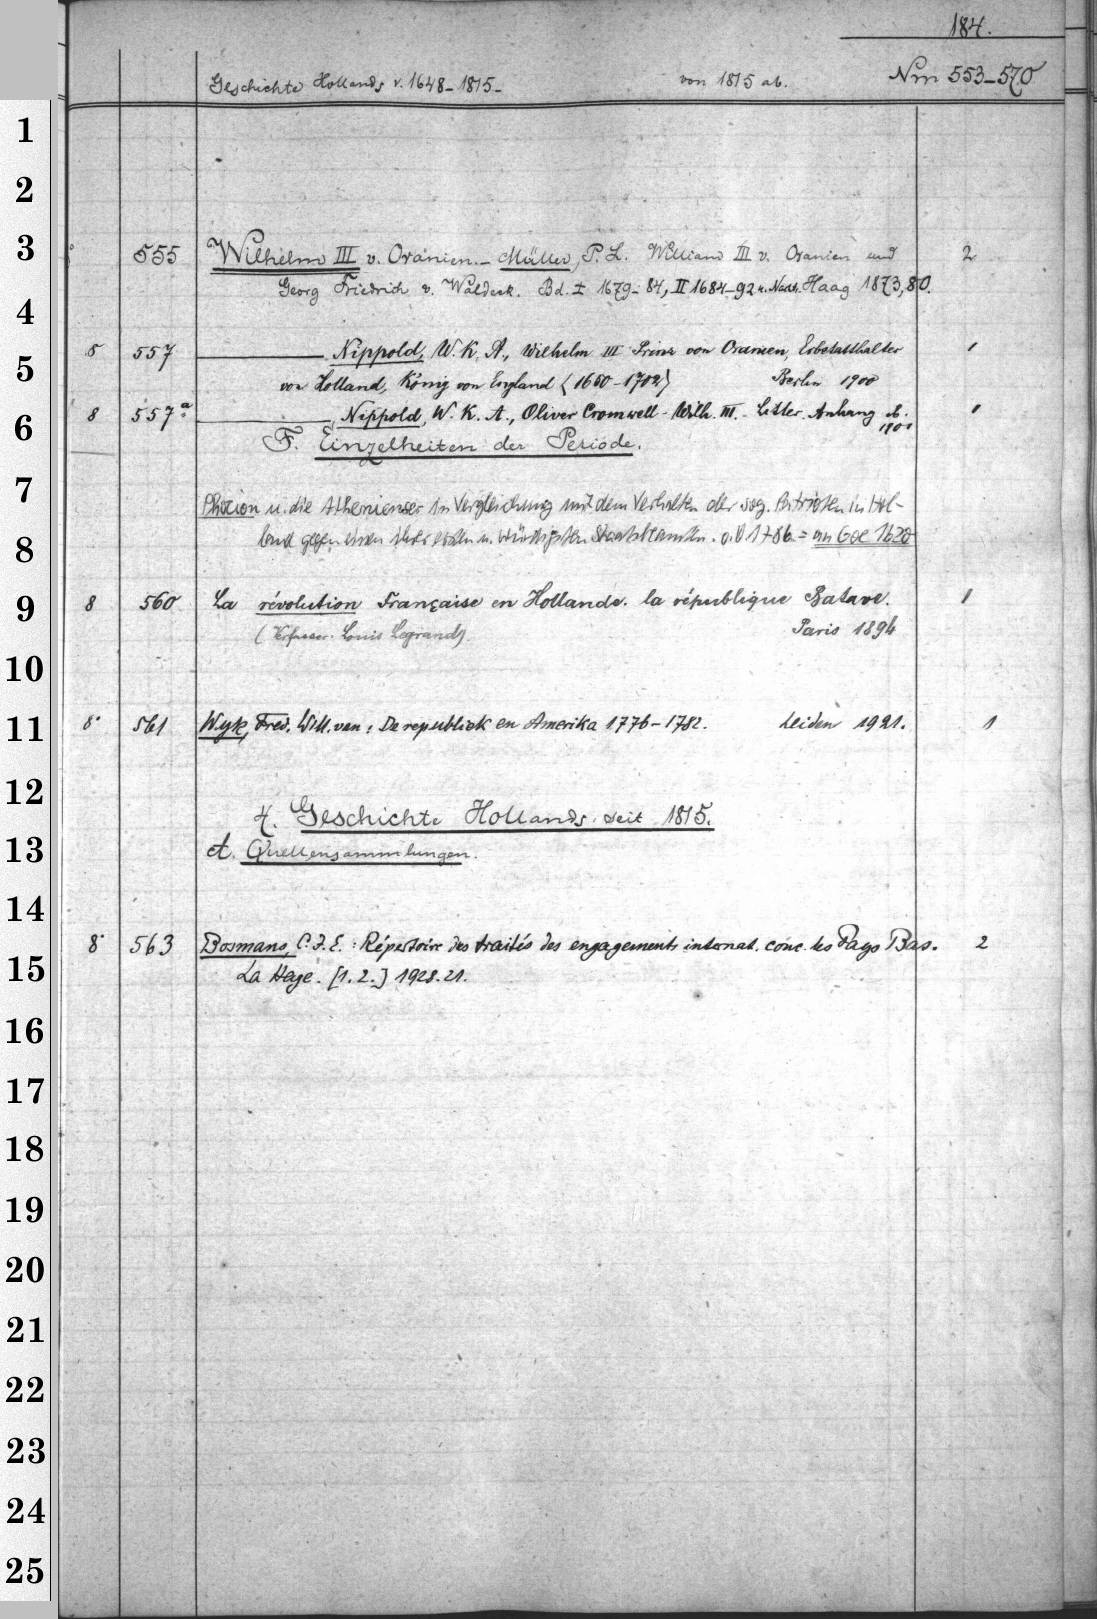 184.
Geschichte Hollands v. 1648-1815- von 1815 ab. Nrn 553-570
1
2
3 555 Wilhelm III v. Oranien. - Müller, P. L. Wilhelm III v. Oranien und 2
Georg Friedrich v. Waldeck. Bd. I 1679-84, II 1684-92 u. Nachtr. Haag 1873, 80.
4
5 8 557 Nippold, W. K. A., Wilhelm III Prinz von Oranien, Erbstatthalter 1
von Holland, König von England (1650-1702) Berlin 1900
6 8 557a Nippold, W. K. A., Oliver Cromwell - Wilh. III. - Litter. Anhang eb. 1
1900
F. Einzelheiten der Periode.
7
Phocion u. die Athenienser in Vergleichung mit dem Verhalten der sog. Patrioten in Hol-
8
land gegen einen ihrer edeln u. würdigsten Staatsbeamten. o. O 1786. = an Goe 1620
9 8 560 La révolution Française en Hollande. la république Batave. 1
(Verfasser. Louis Legrand) Paris 1894
10
11 8° 561 Wyk, Fred. Will. van: De republiek en Amerika 1776-1782. Leiden 1921. 1
12
4. Geschichte Hollands seit 1815.
13 A. Quellensammlungen.
14
8° 563 Bosmans, C. J. E. : Répertoire des traités des engagements internat. conc. les Pays Bas. 2
15 La Haye. [1. 2.] 1928. 21.
16
17
18
19
20
21
22
23
24
25